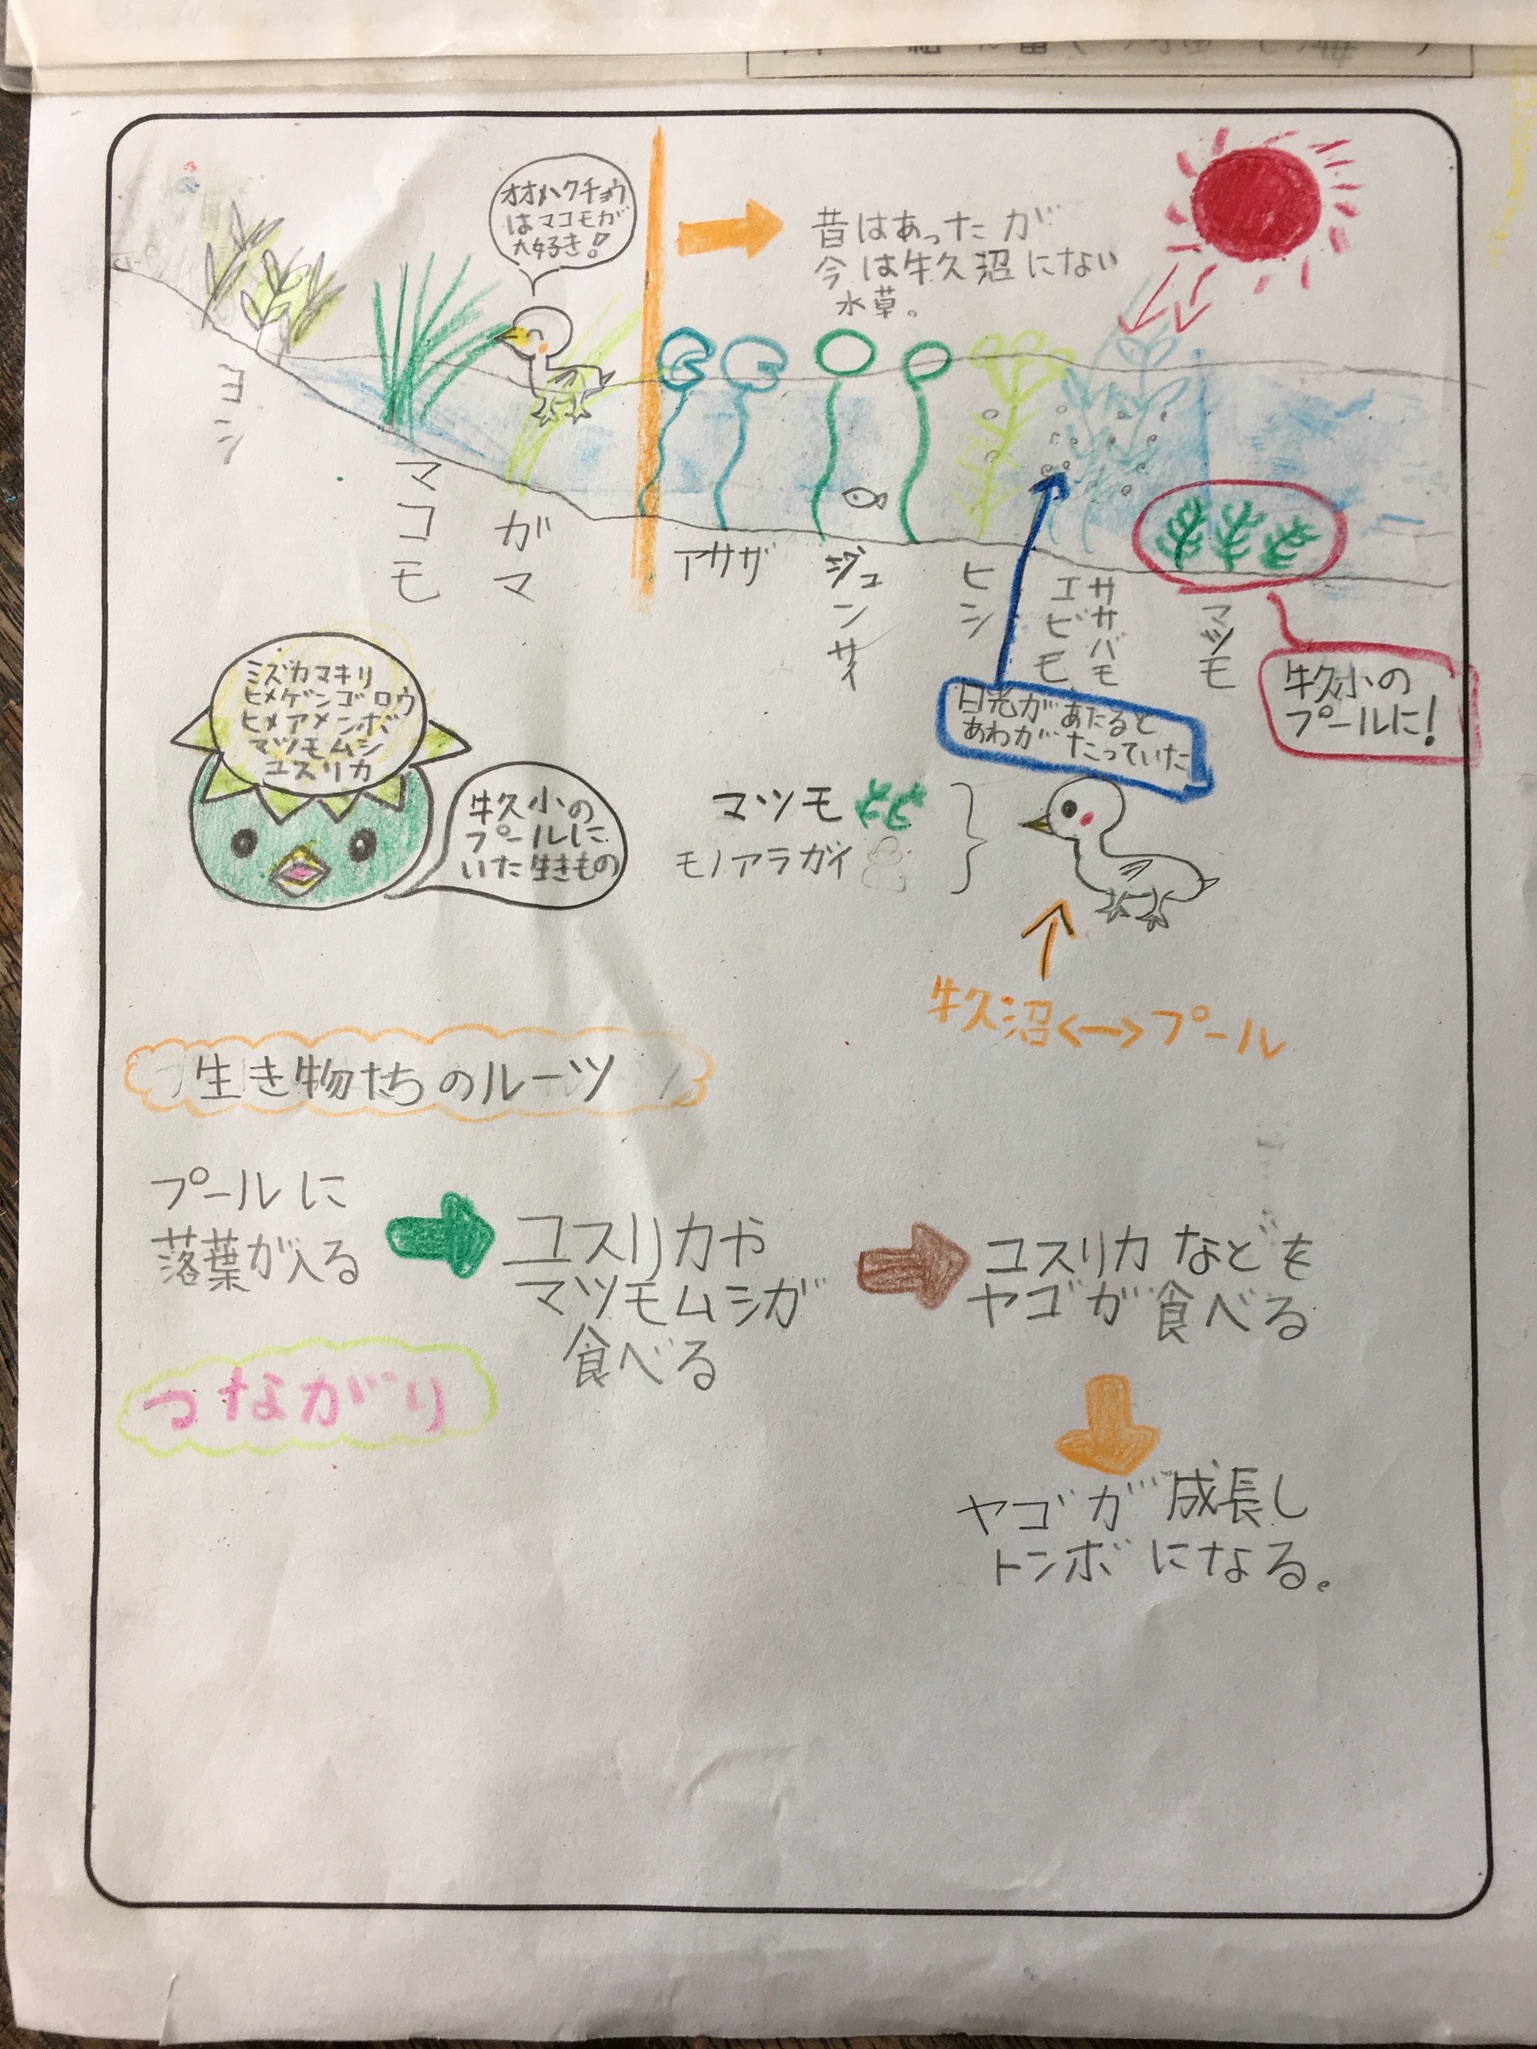 オオハクチョウ
はマコモが
大好き!
昔はあったが
今は牛久沼にない
水草。
ヨシ
マコモ
ガマ
アサザ
ジュンサイ
ヒシ
エビモ
ササバモ
マツモ
牛久小の
プールに!
日光があたると
あわがたっていた
ミズカマキリ
ヒメゲンゴロウ
ヒメアメンボ
マツモムシ
ユスリカ
牛久小の
プールに
いた生きもの
マツモ
モノアラガイ
牛久沼<->プール
生き物たちのルーツ
プールに
落葉が入る
ユスリカや
マツモムシが
食べる
ユスリカなどを
ヤゴが食べる
つながり
ヤゴが成長し
トンボになる。